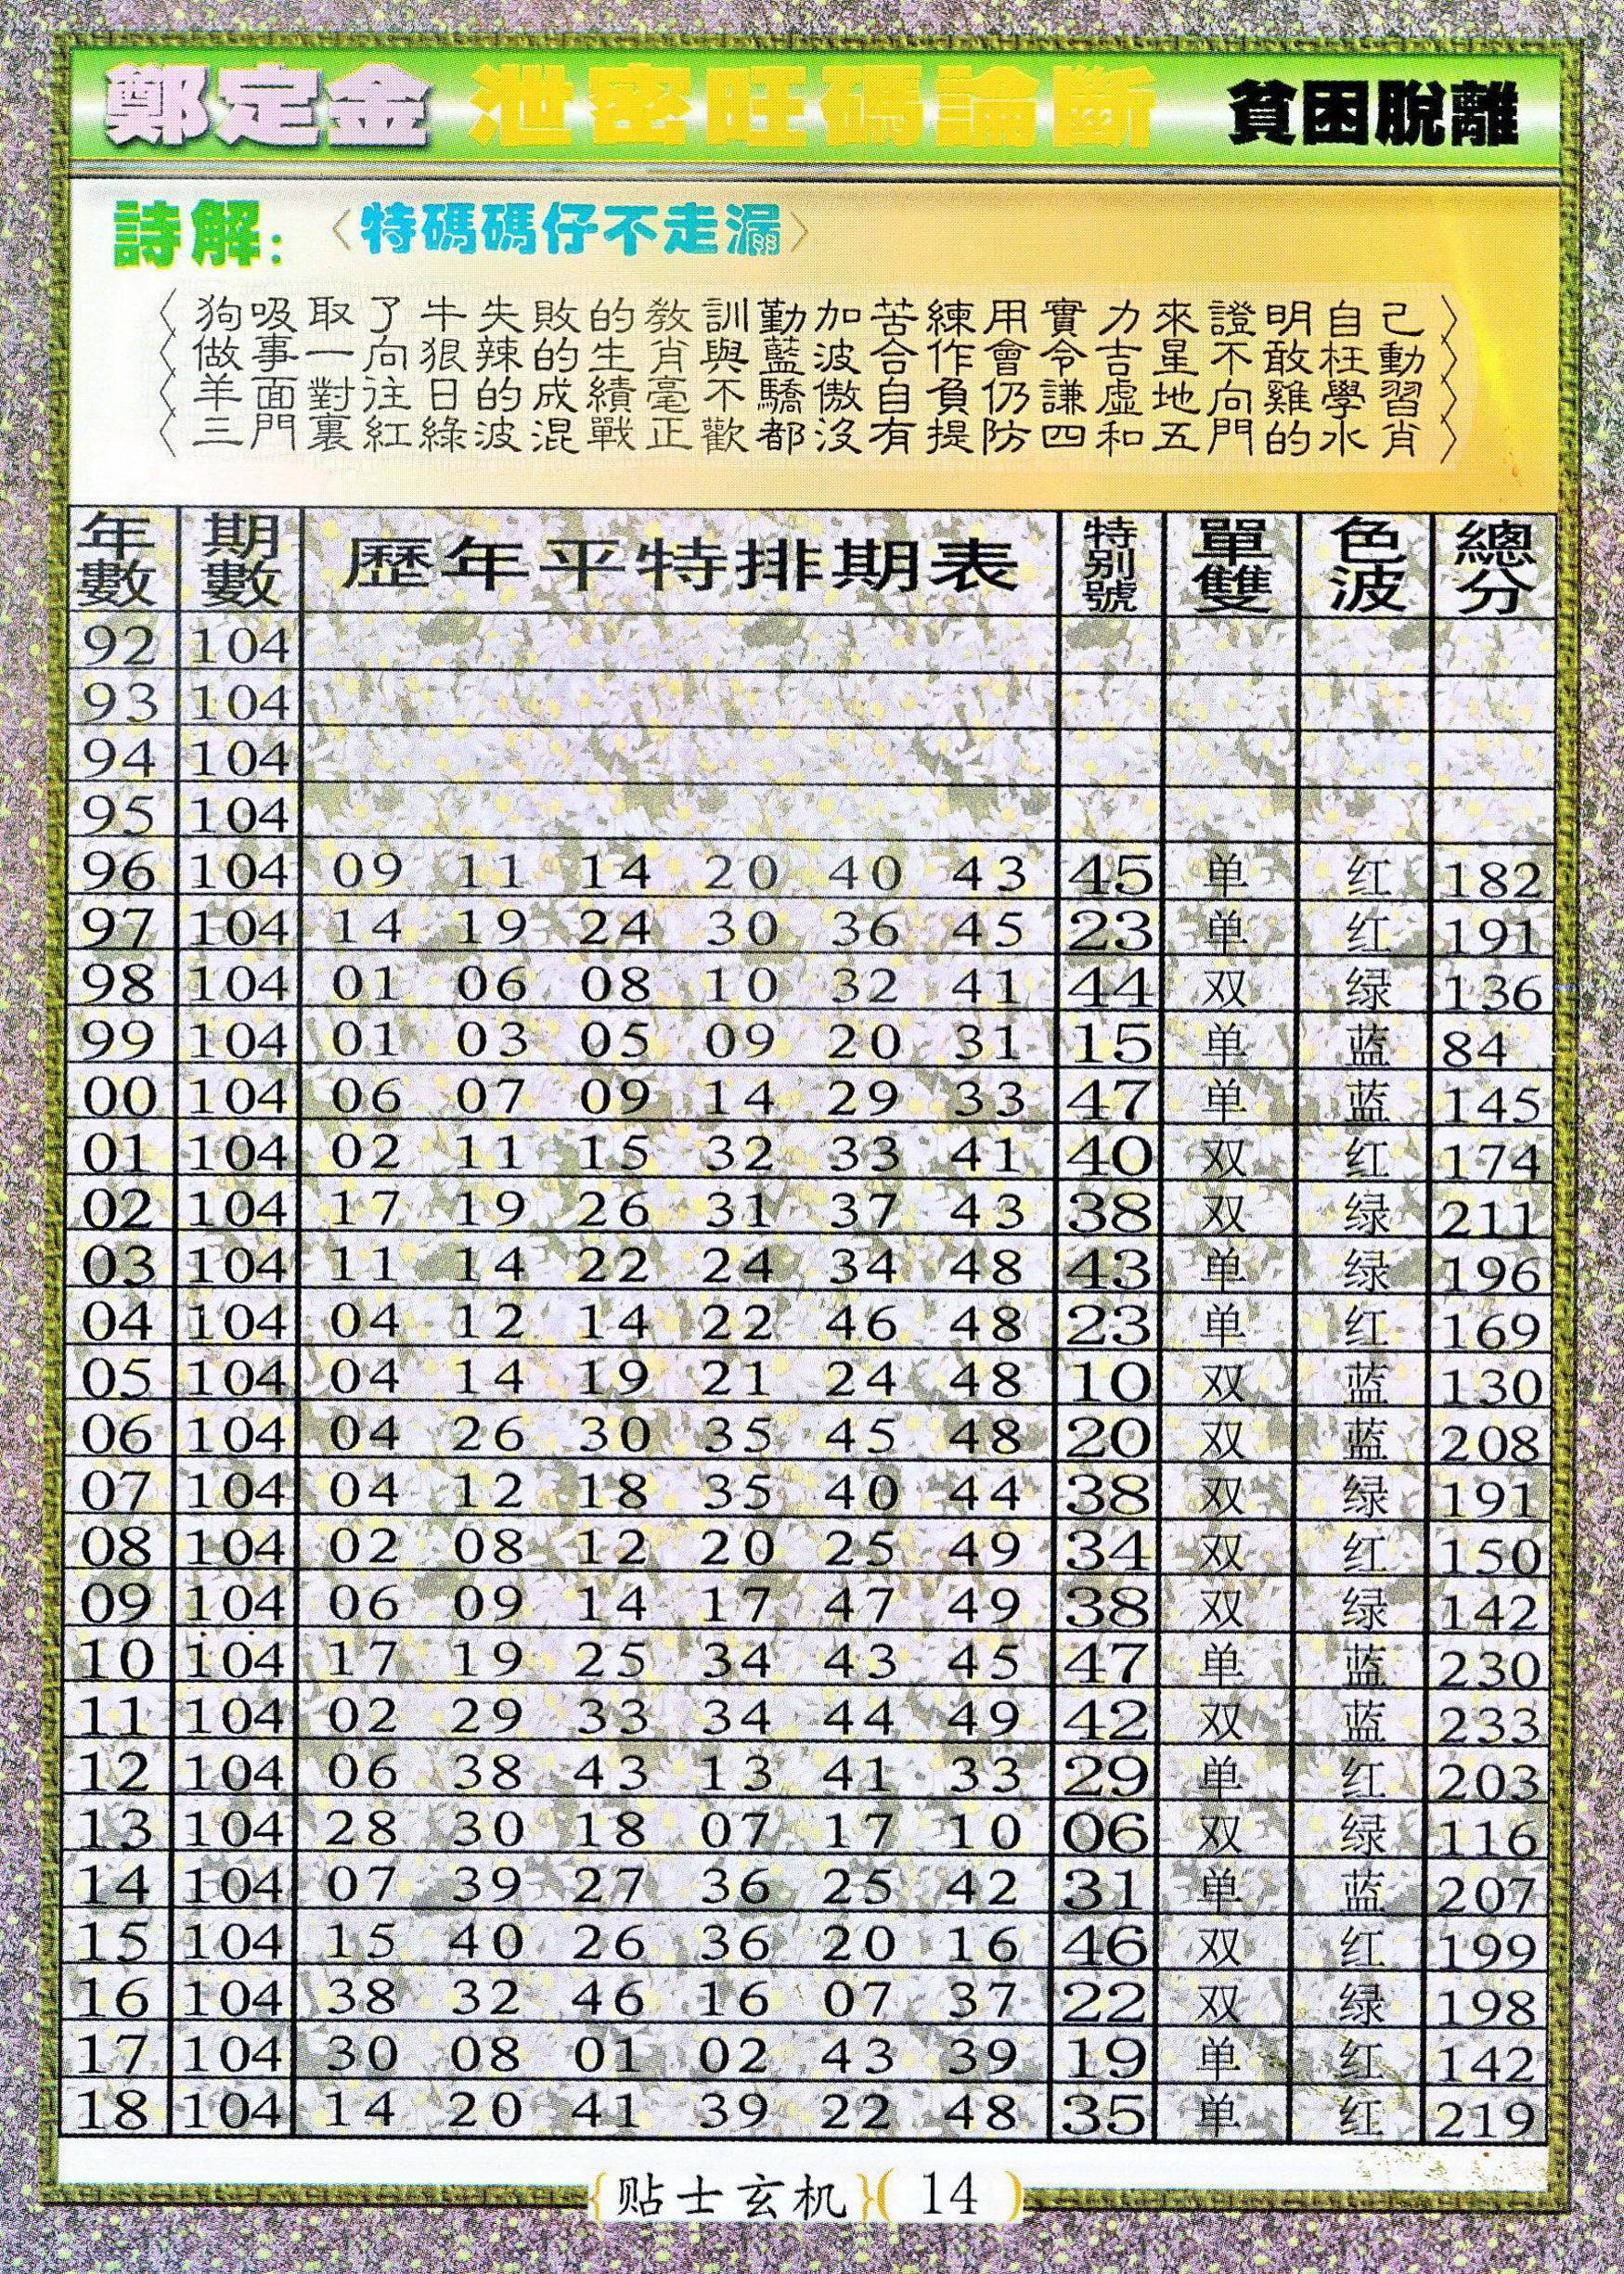 鄭定金 泄密旺碼論斷 貧困脫離
詩解:〈特碼碼仔不走漏〉
〈狗吸取了牛失敗的教訓勤加苦練用實力來證明自己〉
〈做事一向狠辣的生肖與藍波合作會令吉星不敢枉動〉
〈羊面對往日的成績毫不驕傲自負仍謙虛地向雞學習〉
〈三門裏紅綠波混戰正歡都沒有提防四和五門的水肖〉
年數 期數 歷年平特排期表 特別號 單雙 色波 總分
92 104
93 104
94 104
95 104
96 104 09 11 14 20 40 43 45 单 红 182
97 104 14 19 24 30 36 45 23 单 红 191
98 104 01 06 08 10 32 41 44 双 绿 136
99 104 01 03 05 09 20 31 15 单 蓝 84
00 104 06 07 09 14 29 33 47 单 蓝 145
01 104 02 11 15 32 33 41 40 双 红 174
02 104 17 19 26 31 37 43 38 双 绿 211
03 104 11 14 22 24 34 48 43 单 绿 196
04 104 04 12 14 22 46 48 23 单 红 169
05 104 04 14 19 21 24 48 10 双 蓝 130
06 104 04 26 30 35 45 48 20 双 蓝 208
07 104 04 12 18 35 40 44 38 双 绿 191
08 104 02 08 12 20 25 49 34 双 红 150
09 104 06 09 14 17 47 49 38 双 绿 142
10 104 17 19 25 34 43 45 47 单 蓝 230
11 104 02 29 33 34 44 49 42 双 蓝 233
12 104 06 38 43 13 41 33 29 单 红 203
13 104 28 30 18 07 17 10 06 双 绿 116
14 104 07 39 27 36 25 42 31 单 蓝 207
15 104 15 40 26 36 20 16 46 双 红 199
16 104 38 32 46 16 07 37 22 双 绿 198
17 104 30 08 01 02 43 39 19 单 红 142
18 104 14 20 41 39 22 48 35 单 红 219
{贴士玄机}(14)